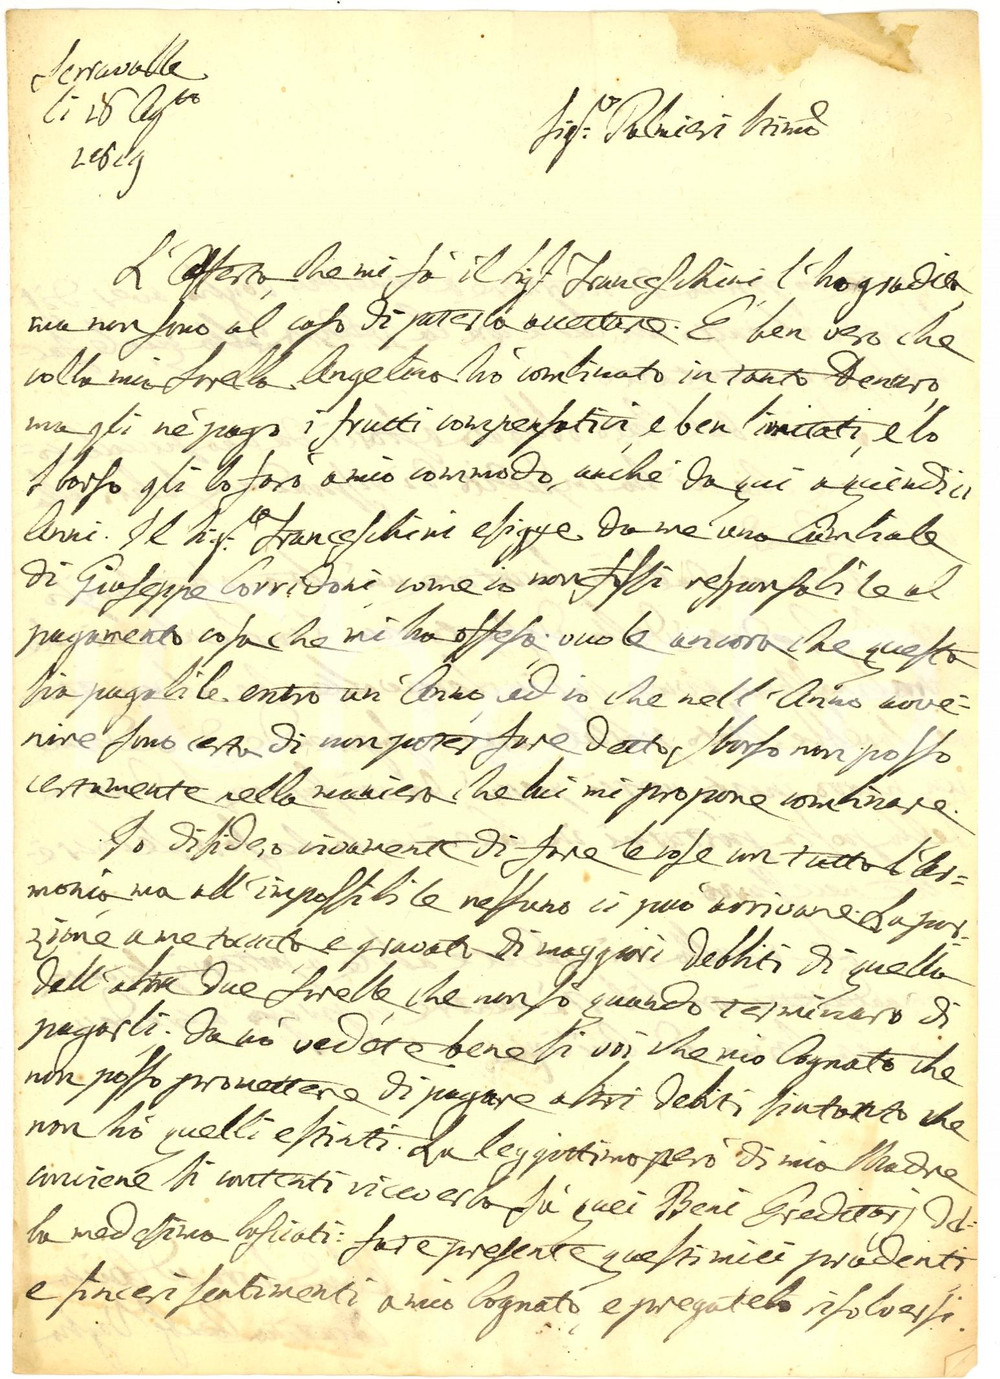 Serravalle
li 28 Ag.to
Sig.r Palmieri Stimo
L'offerta, che mi fà il Sig.r Franceschini l'ho gradita,
ma non sono al caso di poterla accettare. E' ben vero che
colla mia Sorella Angelina hò combinato in tanto Denaro,
ma gli nè pago i frutti compensativi, e ben limitati, e lo
sborso gli lo farò a mio commodo, anche da qui a quindici
Anni. Il Sig.re Franceschini esigge da me una Cambiale
di Giuseppe Corridoni come io non fossi responsabile al
pagamento cosa che mi ha offesa: vuole ancora che questa
sia pagabile entro un'Anno, ed io che nell'Anno avve=
nire sono certa di non poter fare detto sborso non posso
certamente nella maniera che lui mi propone combinare.
Io disidero vivamente di fare le cose con tutta l'ar=
monia, ma all'impossibile nessuno ci può arrivare. La por=
zione a me toccata e gravata di maggiori debbiti di quella
dall'altre due Sorelle, che non sò quando terminarò di
pagarli. Da ciò vedete bene sì voi che mio Cognato che
non posso promettere di pagare altri debiti sintanto che
non hò quelli estinti. La leggittima però di mia Madre
conviene si contenti riceverla sù quei Beni Ereditarj dal=
la medesima lasciati: fate presente questi miei prudenti
e sinceri sentimenti a mio Cognato, e pregatelo risolversi.